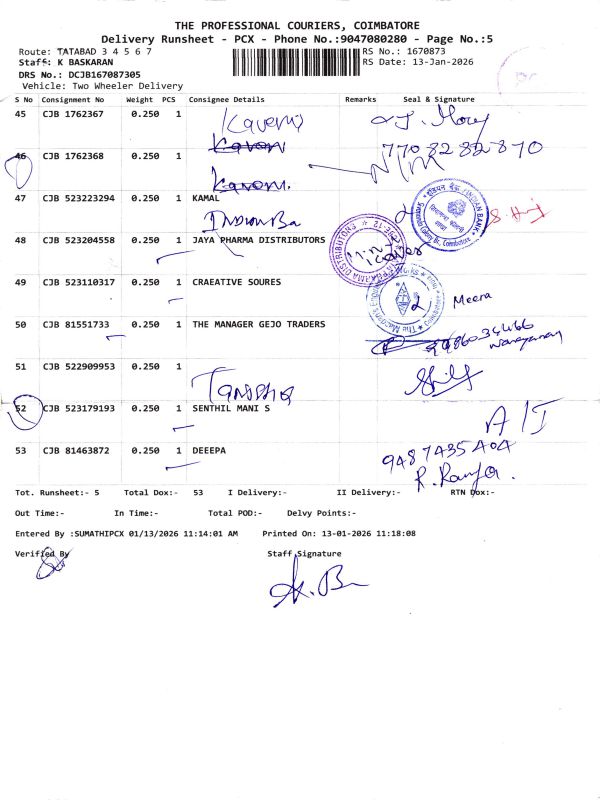 THE PROFESSIONAL COURIERS, COIMBATORE
Delivery Runsheet - PCX - Phone No.:9047080280 - Page No.:5
Route: TATABAD 3 4 5 6 7
RS No.: 1670873
Staff: K BASKARAN
RS Date: 13-Jan-2026
DRS No.: DCJB167087305
Vehicle: Two Wheeler Delivery
S No Consignment No Weight PCS Consignee Details Remarks Seal & Signature
45 CJB 1762367 0.250 1 Kaveri
7708282870
46 CJB 1762368 0.250 1
47 CJB 523223294 0.250 1 KAMAL
INDIAN BANK
Coimbatore
48 CJB 523204558 0.250 1 JAYA PHARMA DISTRIBUTORS
PHARMA DISTRIBUTORS
49 CJB 523110317 0.250 1 CRAEATIVE SOURES
Meera
50 CJB 81551733 0.250 1 THE MANAGER GEJO TRADERS
Narayanan
51 CJB 522909953 0.250 1
52 CJB 523179193 0.250 1 SENTHIL MANI S
A/I
53 CJB 81463872 0.250 1 DEEEPA
9487435404
R. Ranja.
Tot. Runsheet:- 5 Total Dox:- 53 I Delivery:- II Delivery:- RTN Dox:-
Out Time:- In Time:- Total POD:- Delvy Points:-
Entered By :SUMATHIPCX 01/13/2026 11:14:01 AM Printed On: 13-01-2026 11:18:08
Verified By Staff Signature